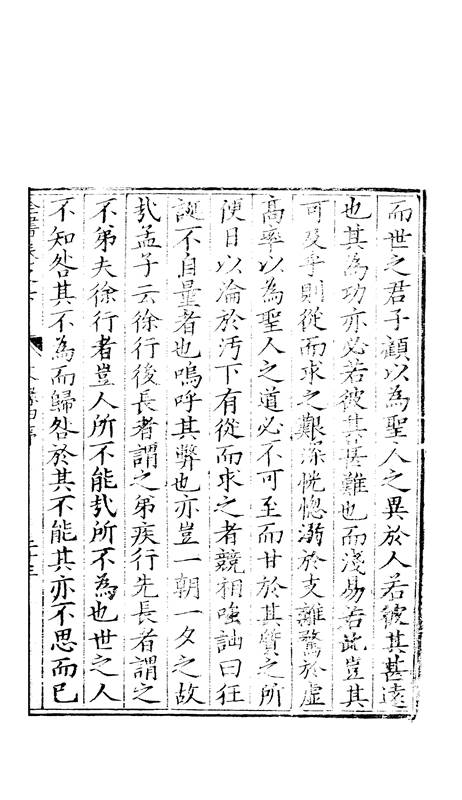 而世之君子顧以為聖人之異於人若彼其甚遠
也其為功亦必若彼其甚難也而淺易若此豈其
可及乎則從而求之艱深恍惚溺於支離騖於虛
高率以為聖人之道必不可至而甘於其質之所
便日以淪於污下有從而求之者競相嗤訕曰狂
誕不自量者也嗚呼其弊也亦豈一朝一夕之故
㢤孟子云徐行後長者謂之弟疾行先長者謂之
不弟夫徐行者豈人所不能㢤所不為也世之人
不知咎其不為而歸咎於其不能其亦不思而已